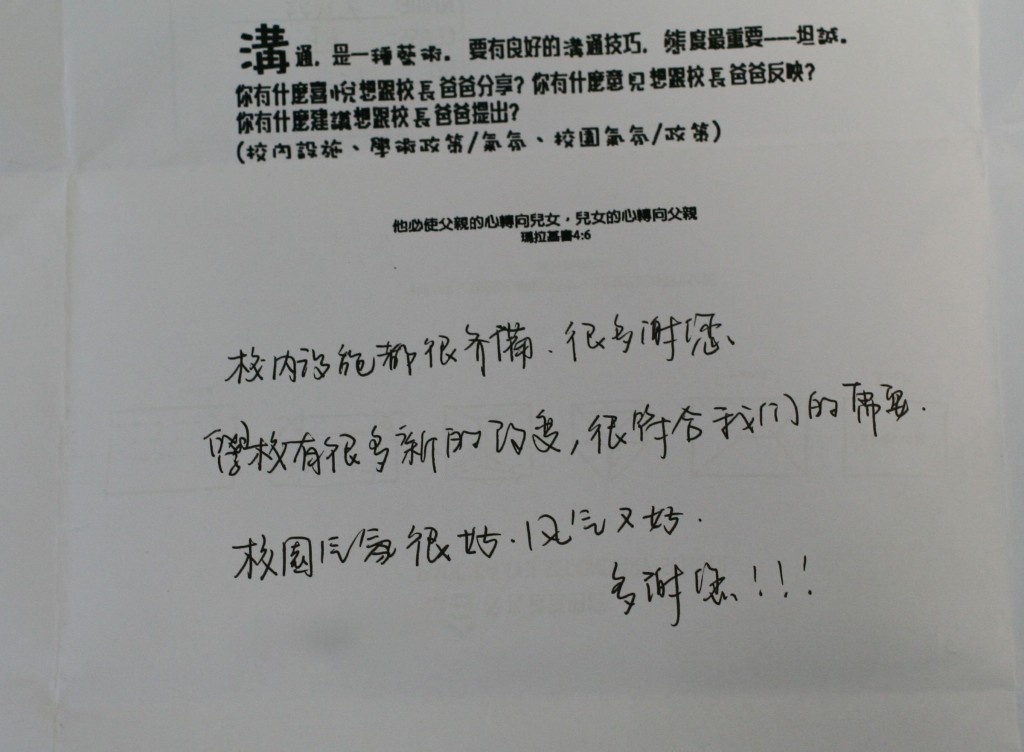 溝通，是一種藝術。要有良好的溝通技巧，態度最重要——坦誠。
你有什麼喜悅想跟校長爸爸分享？你有什麼意見想跟校長爸爸反映？
你有什麼建議想跟校長爸爸提出？
(校內設施、學術政策/氣氛、校園氣氛/政策)
他必使父親的心轉向兒女，兒女的心轉向父親
瑪拉基書4:6
校内设施都很齐備．很多谢您、
學校有很多新的改变，很符合我们的需要．
校園气氛很好．风气又好．
多谢您！！！